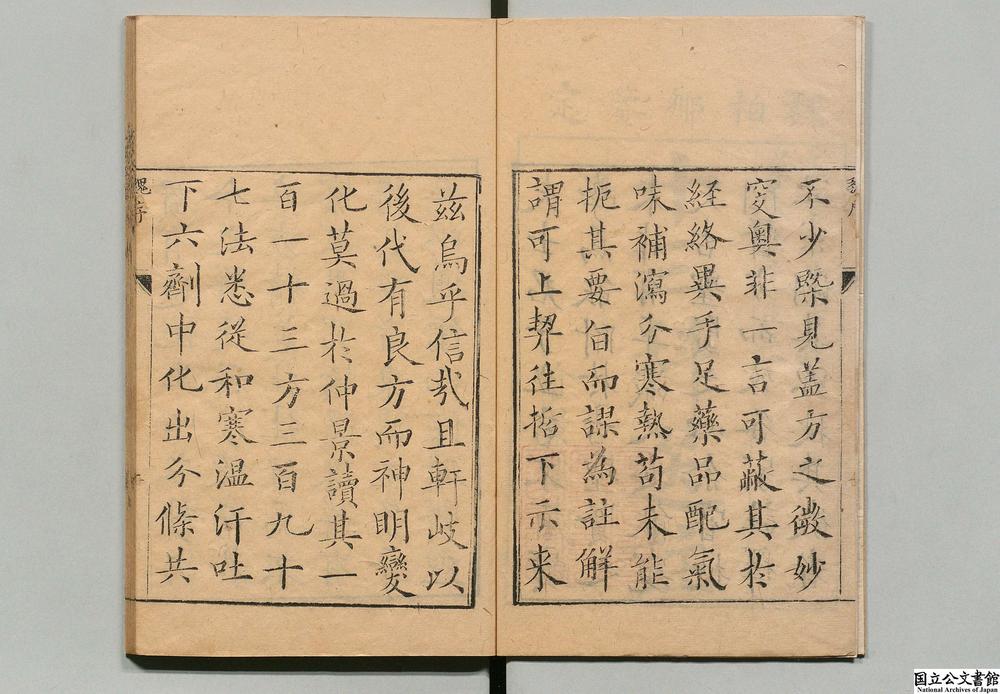 不少槩見蓋方之微妙
窔奧非一言可蔽其於
経絡異手足藥品配氣
味補瀉分寒熱苟未能
扼其要百而謬為註解
謂可上契往哲下示来
茲烏乎信㢤且軒岐以
後代有良方而神明變
化莫過於仲景讀其一
百一十三方三百九十
七法悉從和寒温汗吐
下六劑中化出分條共
魏序
国立公文書館
National Archives of Japan